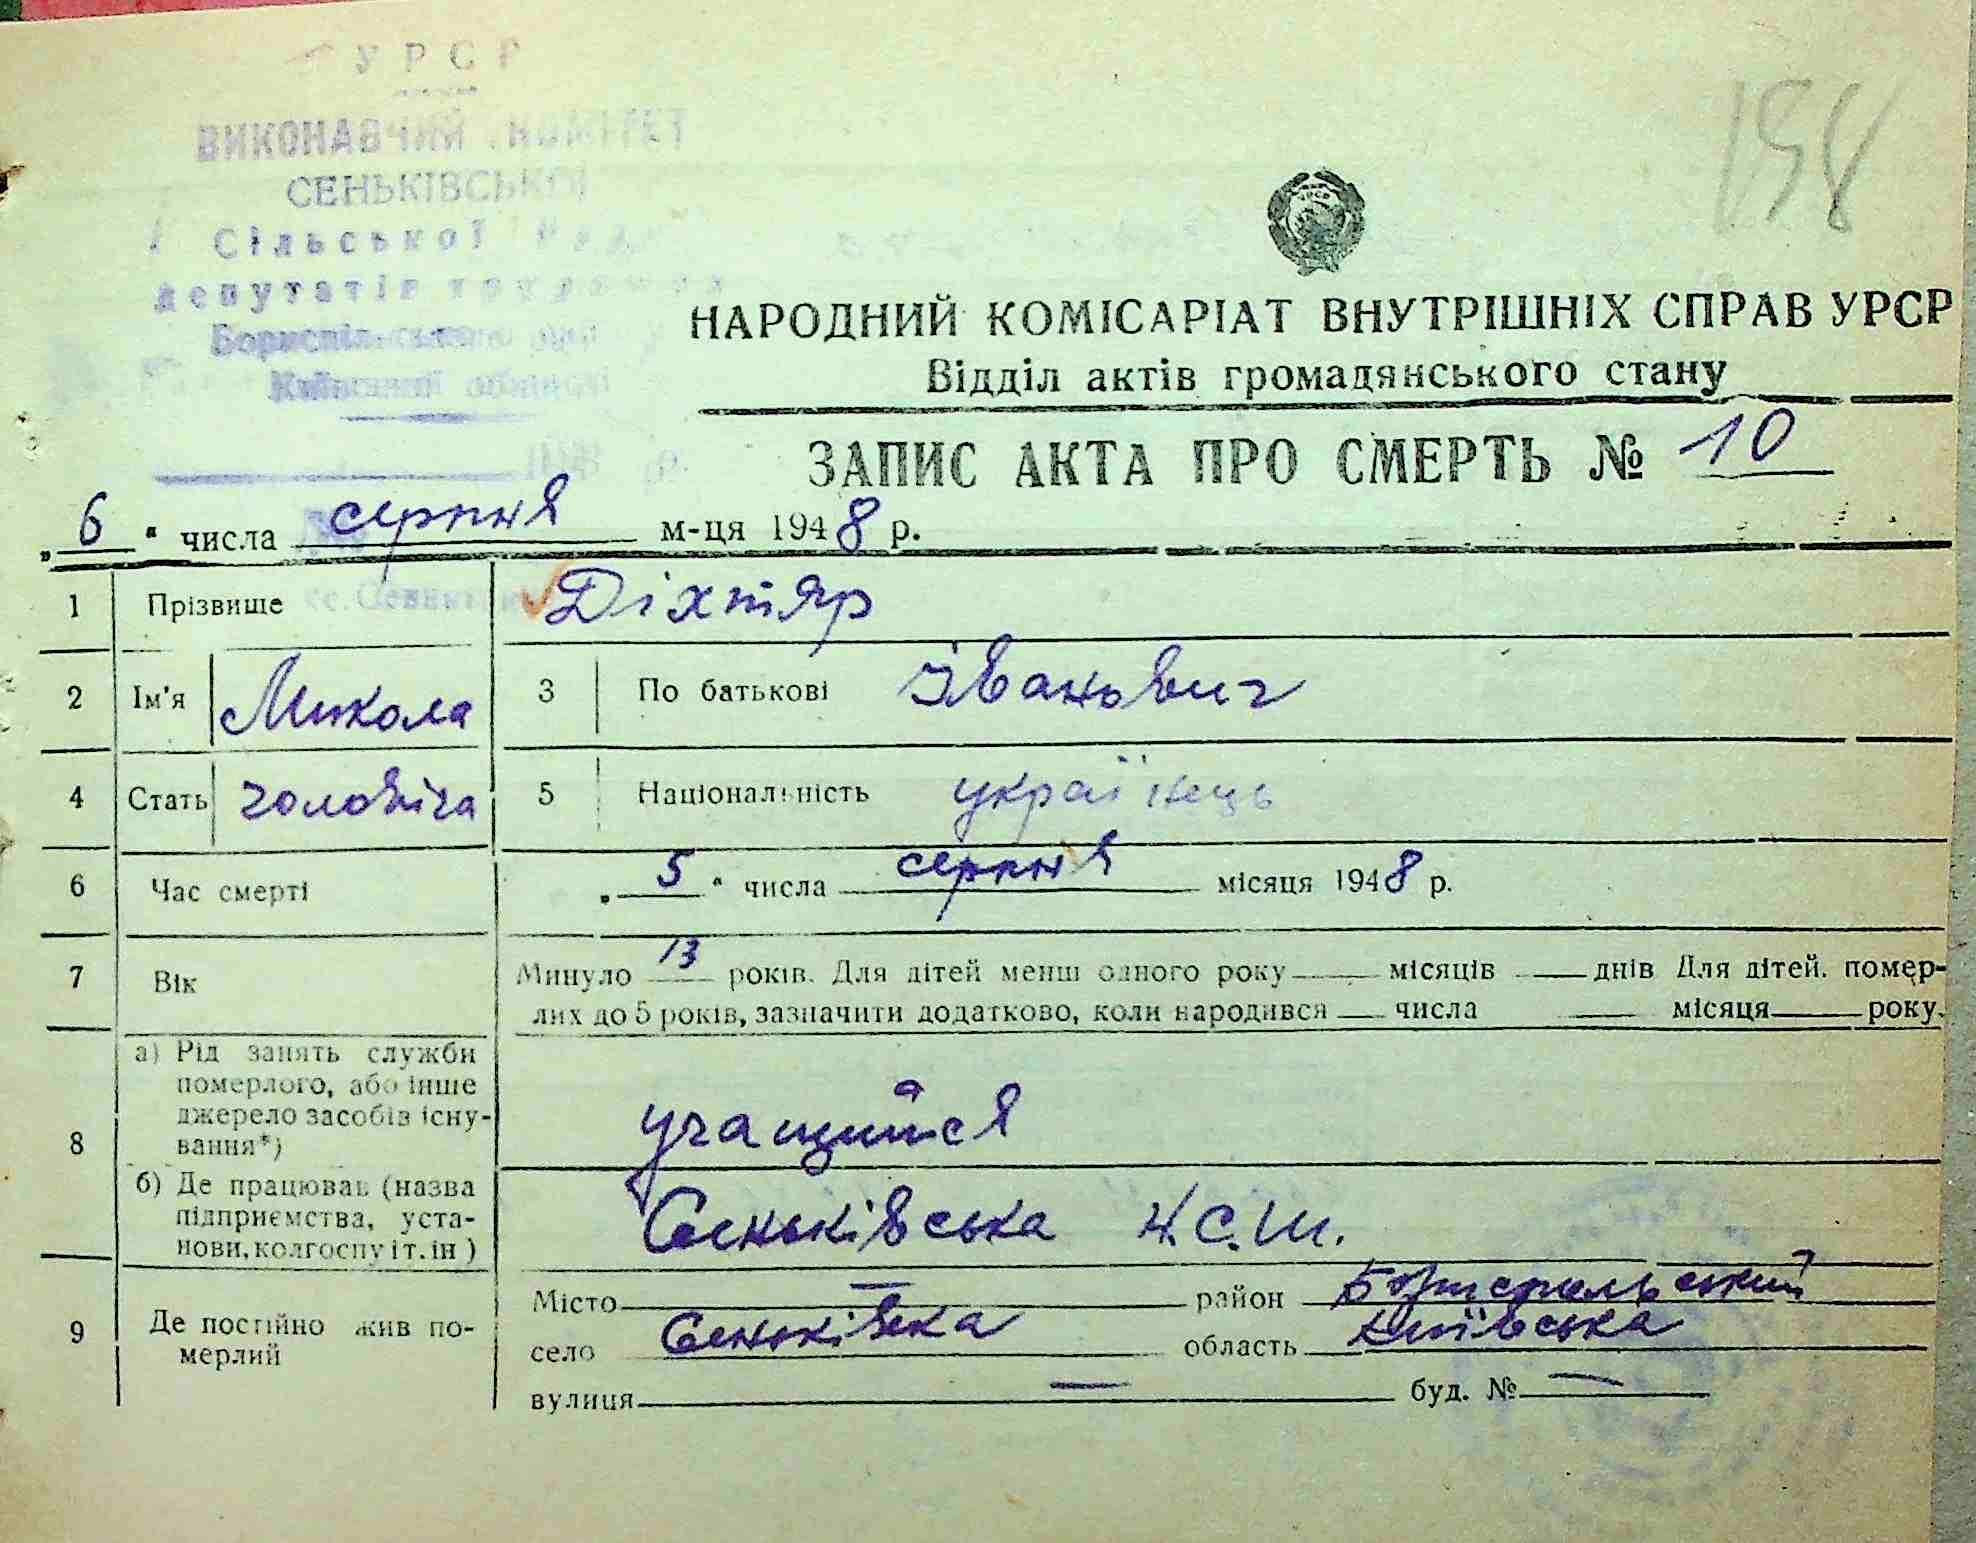 УРСР
ВИКОНАВЧИЙ КОМІТЕТ
СЕНЬКІВСЬКОЇ
Сільської
депутатів
Київської області
198
НАРОДНИЙ КОМІСАРІАТ ВНУТРІШНІХ СПРАВ УРСР
Відділ актів громадянського стану
ЗАПИС АКТА ПРО СМЕРТЬ № 10
„6" числа серпня м-ця 1948 р.
1 Прізвище Діхтяр
2 Ім'я Микола 3 По батькові Іванович
4 Стать чоловіча 5 Національність українець
6 Час смерті „5" числа серпня місяця 1948 р.
7 Вік Минуло 13 років. Для дітей менш одного року — місяців — днів Для дітей. помер-
лих до 5 років, зазначити додатково, коли народився — числа — місяця — року.
8 а) Рід занять служби
померлого, або інше
джерело засобів існу-
вання*)
учащийся
б) Де працював (назва
підприємства, уста-
нови, колгоспу і т. ін)
Сеньківська Н.С.Ш.
9 Де постійно жив по-
мерлий
Місто — район Бориспольський
село Сеньківка область Київська
вулиця — буд. № —